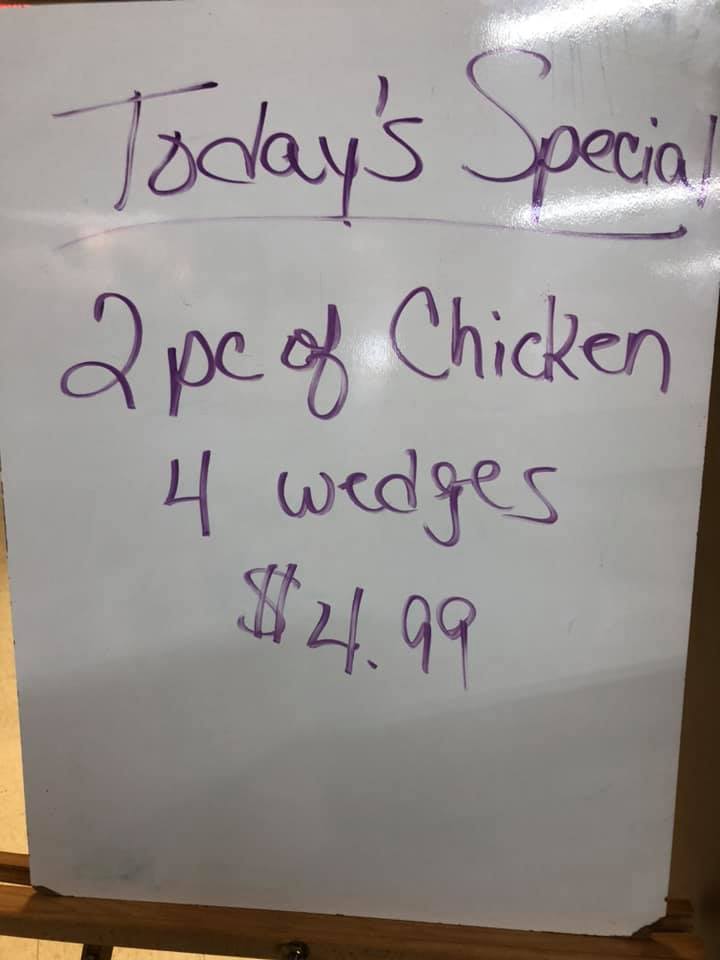 Today's Special
2 pc of Chicken
4 wedges
$4.99